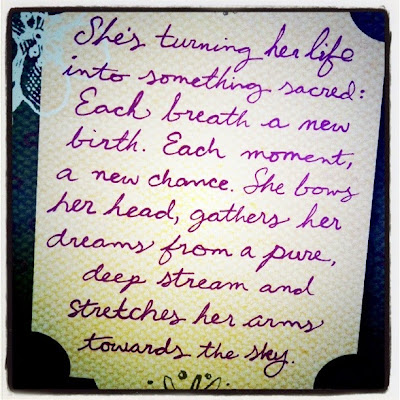 She's turning her life
into something sacred:
Each breath a new
birth. Each moment,
a new chance. She bows
her head, gathers her
dreams from a pure,
deep stream and
stretches her arms
towards the sky.